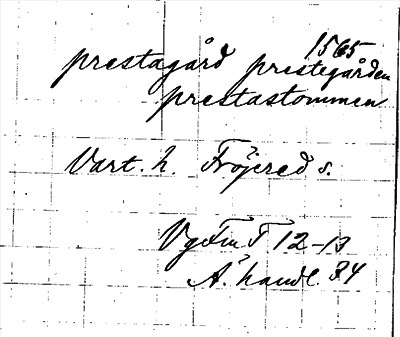 1565
prestagård prestegården
prestastommen
Vart. h. Fröjered s.
VgFmT 12-13
Å. handl. 34